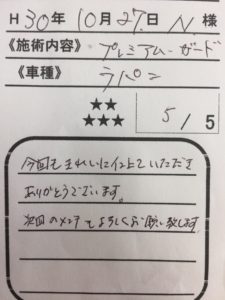 H 30年 10月 27日 N. 様
《施術内容》 プレミアム・ガード
《車種》 ラパン
★★
★★★
5 / 5
今回もきれいに仕上ていただき
ありがとうございます。
次回のメンテもよろしくお願い致します